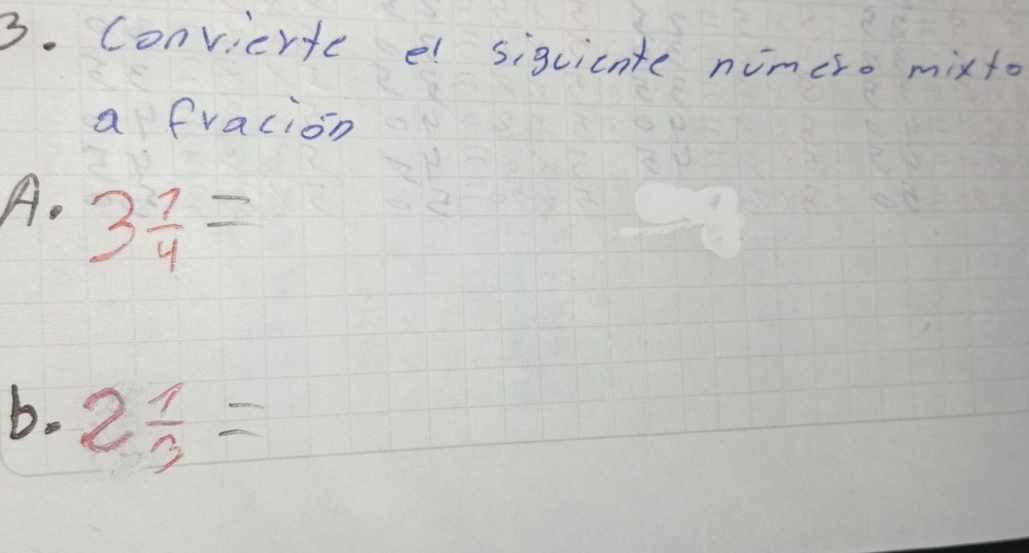 3. Convierte el siguiente número mixto
a fración
A. 3 1/4 =
b. 2 1/3 =